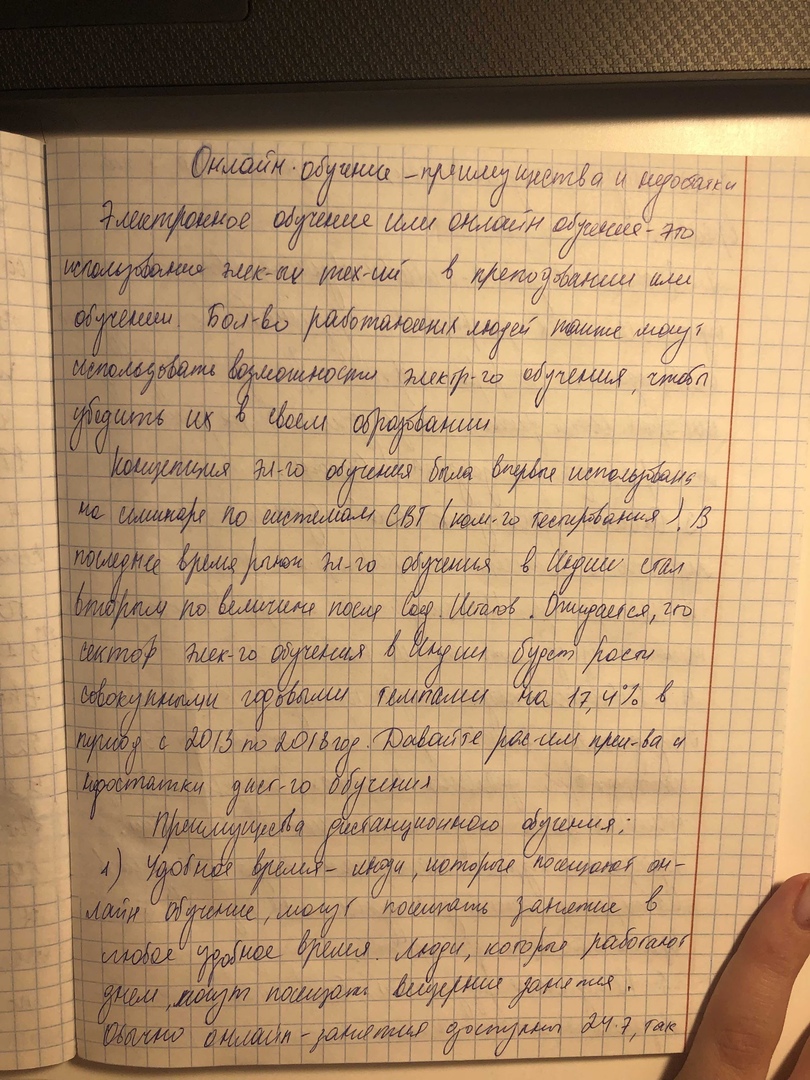 Онлайн-обучение – преимущества и недостатки
Электронное обучение или онлайн обучения - это
использование элек-ых тех-ий в преподовании или
обучении. Бол-во работающих людей также могут
использовать возможности электр-го обучения, чтобы
убедить их в своем образовании
Концепция эл-го обучения была впервые использована
на семинаре по системам СВТ (ком-го тестирования). В
последнее время рынок эл-го обучения в Индии стал
вторым по величине после Соед. Штатов. Ожидается, что
сектор элек-го обучения в Индии будет расти
совокупными годовыми темпами на 17,4% в
период с 2013 по 2018 год. Давайте рас-им преи-ва и
недостатки дист-го обучения
Преимущества дистанционного обучения:
1) Удобное время - люди, которые посещают он-
лайн обучение, могут посещать занятие в
любое удобное время. Люди, которые работают
днем, могут посещать вечерние занятия.
Обычно онлайн-занятия доступны 24.7, так